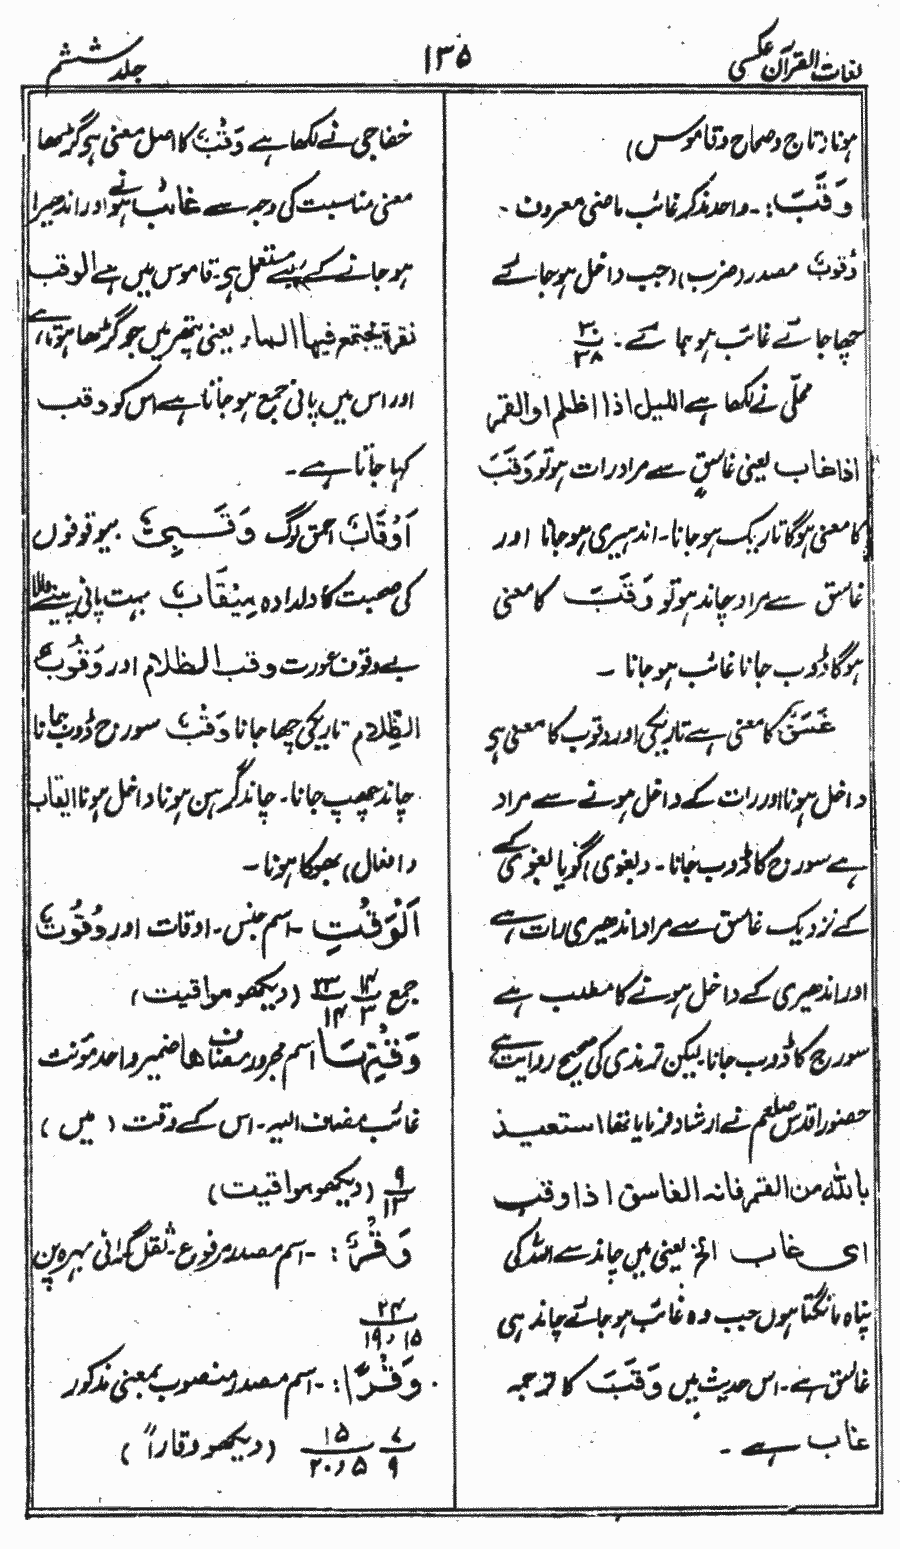 لغات القرآن عکسی
۱۳۵
جلد ششم
ہونا (تاج و صماح و قاموس)
وَقَبَ :۔ واحد مذکر غائب ماضی معروف ۔
وُقُوبٌ مصدر (ضرب) (جب داخل ہو جائے
چھا جائے غائب ہو جائے ۔ ۳۰/۳۸
محلّی نے لکھا ہے اللیل اذا اظلم او القمر
اذا غاب یعنی غاسقٍ سے مراد رات ہو تو وَقَبَ
کا معنی ہوگا تاریک ہو جانا ۔ اندہیری ہو جانا اور
غاسق سے مراد چاند ہو تو وَقَبَ کا معنی
ہوگا ڈوب جانا غائب ہو جانا ۔
غَسَق کا معنی ہے تاریکی اور وقوب کا معنی ہے
داخل ہونا اور رات کے داخل ہونے سے مراد
ہے سورج کا ڈوب جانا ۔ (بغوی) گویا بغوی کے
کے نزدیک غاسق سے مراد اندھیری رات ہے
اور اندھیری کے داخل ہونے کا مطلب ہے
سورج کا ڈوب جانا ۔ لیکن ترمذی کی صحیح روایت ہے
حضور اقدس صلعم نے ارشاد فرمایا تھا استعیذ
باللہ من القمر فانہ الغاسق اذا وقب
ای غاب الخ یعنی میں چاند سے اللہ کی
پناہ مانگتا ہوں جب وہ غائب ہو جائے چاند ہی
غاسق ہے ۔ اس حدیث میں وَقَبَ کا ترجمہ
غاب ہے ۔
خفاجی نے لکھا ہے وَقْبٌ کا اصل معنی ہے گڑھا
معنی مناسبت کی وجہ سے غائب ہونے اور اندھیرا
ہو جانے کے لئے مستعمل ہے ۔ قاموس میں ہے الوقب
نقرة یجتمع فیہا الماء یعنی پتھر میں جو گڑھا ہوتا ہے
اور اس میں پانی جمع ہو جاتا ہے اس کو وقب
کہا جاتا ہے ۔
اَوْقَابٌ احمق لوگ وَقَبِیٌّ بیوقوفوں
کی صحبت کا دلدادہ مِیْقَابٌ بہت پانی پینے والا
بے وقوف عورت وقب الظلام اور وَقُوبُ
الظِّلام تاریکی چھا جانا وَقْبٌ سورج ڈوب جانا
چاند چھپ جانا ۔ چاند گرہن ہونا داخل ہونا ایقاب
(افعال) بھوکا ہونا ۔
اَلْوَقْتِ ۔ اسم جنس ۔ اوقات اور وُقُوتٌ
جمع ۱۴/۳ ۲۳/۱۴ (دیکھو مواقیت)
وَقْتِہَا اسم مجرور مضاف ھا ضمیر واحد مؤنث
غائب مضاف الیہ ۔ اس کے وقت (میں)
۹/۱۲ (دیکھو مواقیت)
وَقْرٌ :۔ اسم مصدر مرفوع ۔ ثقل گرانی بہرہ پن
۲۴/۱۵، ۱۹
وَقْرًا :۔ اسم مصدر منصوب بمعنی مذکور
۷/۹ ۱۵/۵، ۲۰ (دیکھو وقاراً)